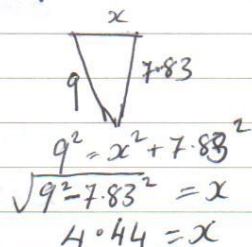 x
9 7.83
9² = x² + 7.83²
√9² - 7.83² = x
4.44 = x